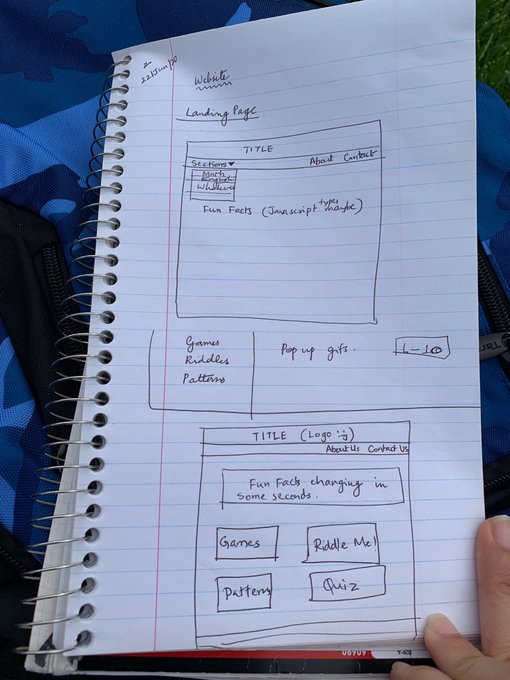 22/Jun/20
Website
Landing Page
TITLE
Sections ▾ About Contact
Math
English
Whatever
Fun Facts (Javascript types maybe)
Games
Riddles
Patterns
Pop up gifs.
6-10
TITLE (Logo :))
About Us Contact Us
Fun Facts changing in
some seconds.
Games Riddle Me!
Patterns Quiz
06909 Y-400